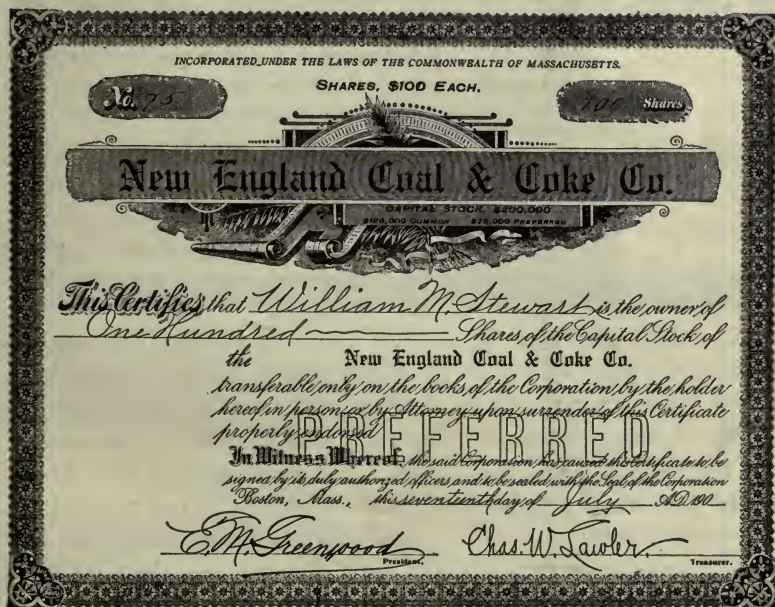 INCORPORATED UNDER THE LAWS OF THE COMMONWEALTH OF MASSACHUSETTS.
SHARES, $100 EACH.
No. 75
100 Shares
New England Coal & Coke Co.
CAPITAL STOCK, $200,000
$125,000 COMMON $75,000 PREFERRED
This Certifies that William M. Stewart is the owner of
One Hundred Shares of the Capital Stock of
the New England Coal & Coke Co.
transferable only on the books of the Corporation by the holder
hereof in person or by Attorney upon surrender of this Certificate
properly endorsed
PREFERRED
In Witness Whereof, the said Corporation has caused this Certificate to be
signed by its duly authorized officers and to be sealed with the Seal of the Corporation
Boston, Mass., this seventeenth day of July A.D. 190
E. M. Greenwood Chas. W. Lawler.
President. Treasurer.